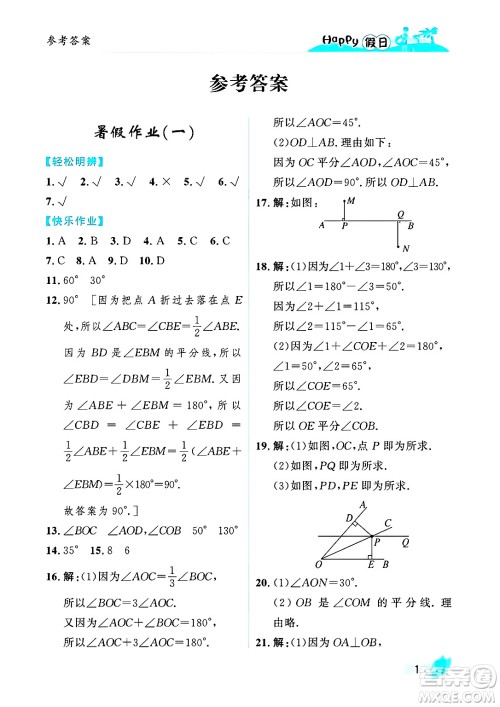 参考答案
Happy 假日
参考答案
暑假作业(一)
【轻松明辨】
1.√ 2.√ 3.√ 4.× 5.√ 6.√
7.√
【快乐作业】
1.A 2.B 3.A 4.D 5.C 6.C
7.C 8.D 9.D 10.D
11.60° 30°
12.90° [因为把点 A 折过去落在点 E
处,所以∠ABC=∠CBE=1/2∠ABE.
因为 BD 是∠EBM 的平分线,所以
∠EBD=∠DBM=1/2∠EBM. 因为
∠ABE+∠EBM=180°,所以
1/2∠ABE+1/2∠EBM=1/2(∠ABE+
∠EBM)=1/2×180°=90°.
故答案为 90°.]
13.∠BOC ∠AOD,∠COB 50° 130°
14.35° 15.8 6
16.解:(1)因为∠AOC=1/3∠BOC,
所以∠BOC=3∠AOC.
又因为∠AOC+∠BOC=180°,
所以∠AOC+3∠AOC=180°,
所以∠AOC=45°.
(2)OD⊥AB. 理由如下:
因为 OC 平分∠AOD,∠AOC=45°,
所以∠AOD=90°. 所以 OD⊥AB.
17.解:如图:
M
Q
A
P
B
N
18.解:(1)因为∠1+∠3=∠2+∠3=130°,
所以∠1=180°-∠2-∠3=50°.
所以∠2=180°-∠1-∠3=65°.
(2)因为∠1+∠2+∠COE=180°,
∠1=50°,∠2=65°,
所以∠COE=65°.
所以∠COE=∠2.
所以 OE 平分∠COB.
19.解:(1)如图,OC,点 P 即为所求.
(2)如图,PQ 即为所求.
(3)如图,PD,PE,即为所求.
A
D
C
P
O
E
B
20.(1)∠AON=30°.
(2)OB 是∠COM 的平分线. 理由
略.
21.解:(1)因为 OA⊥OB,
1